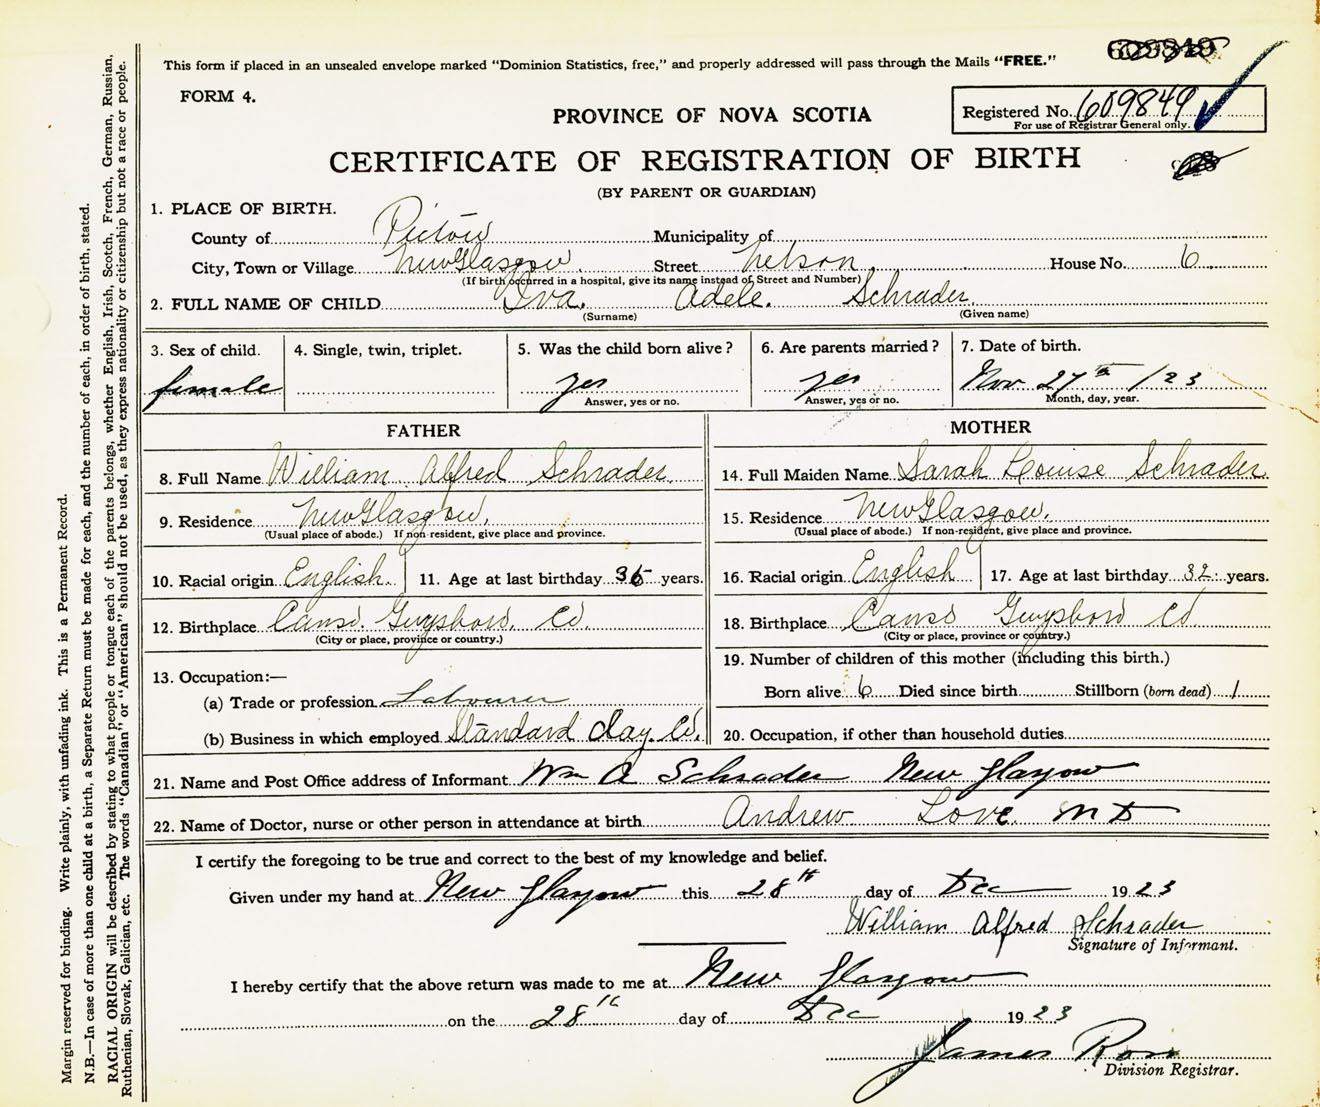 This form if placed in an unsealed envelope marked "Dominion Statistics, free," and properly addressed will pass through the Mails "FREE."
FORM 4.
PROVINCE OF NOVA SCOTIA
Registered No. 609849
For use of Registrar General only.
CERTIFICATE OF REGISTRATION OF BIRTH
(BY PARENT OR GUARDIAN)
1. PLACE OF BIRTH.
County of Pictou Municipality of
City, Town or Village New Glasgow. Street Nelson. House No. 6
(If birth occurred in a hospital, give its name instead of Street and Number)
2. FULL NAME OF CHILD Iva. Adele. Schrader.
(Surname) (Given name)
3. Sex of child. 4. Single, twin, triplet. 5. Was the child born alive? 6. Are parents married? 7. Date of birth.
female yes yes Nov 27th /23
Answer, yes or no. Answer, yes or no. Month, day, year.
FATHER
8. Full Name William Alfred Schrader
9. Residence New Glasgow.
(Usual place of abode.) If non-resident, give place and province.
10. Racial origin English. 11. Age at last birthday 36 years.
12. Birthplace Canso. Guysboro. Co.
(City or place, province or country.)
13. Occupation:—
(a) Trade or profession Labourer
(b) Business in which employed Standard Clay. Co.
MOTHER
14. Full Maiden Name Sarah Louise Schrader.
15. Residence New Glasgow.
(Usual place of abode.) If non-resident, give place and province.
16. Racial origin English 17. Age at last birthday 32 years.
18. Birthplace Canso Guysboro Co
(City or place, province or country.)
19. Number of children of this mother (including this birth.)
Born alive 6 Died since birth Stillborn (born dead) 1
20. Occupation, if other than household duties
21. Name and Post Office address of Informant Wm A Schrader New Glasgow
22. Name of Doctor, nurse or other person in attendance at birth Andrew Love MD
I certify the foregoing to be true and correct to the best of my knowledge and belief.
Given under my hand at New Glasgow this 28th day of Dec 1923
William Alfred Schrader
Signature of Informant.
I hereby certify that the above return was made to me at New Glasgow
on the 28th day of Dec 1923
James Ross
Division Registrar.
Margin reserved for binding. Write plainly, with unfading ink. This is a Permanent Record.
N.B.—In case of more than one child at a birth, a Separate Return must be made for each, and the number of each, in order of birth, stated.
RACIAL ORIGIN will be described by stating to what people or tongue each of the parents belongs, whether English, Irish, Scotch, French, German, Russian,
Ruthenian, Slovak, Galician, etc. The words "Canadian" or "American" should not be used, as they express nationality or citizenship but not a race or people.